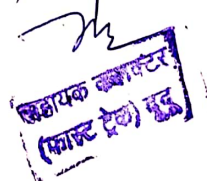 सहायक कलक्टर
(फास्ट ट्रेक)